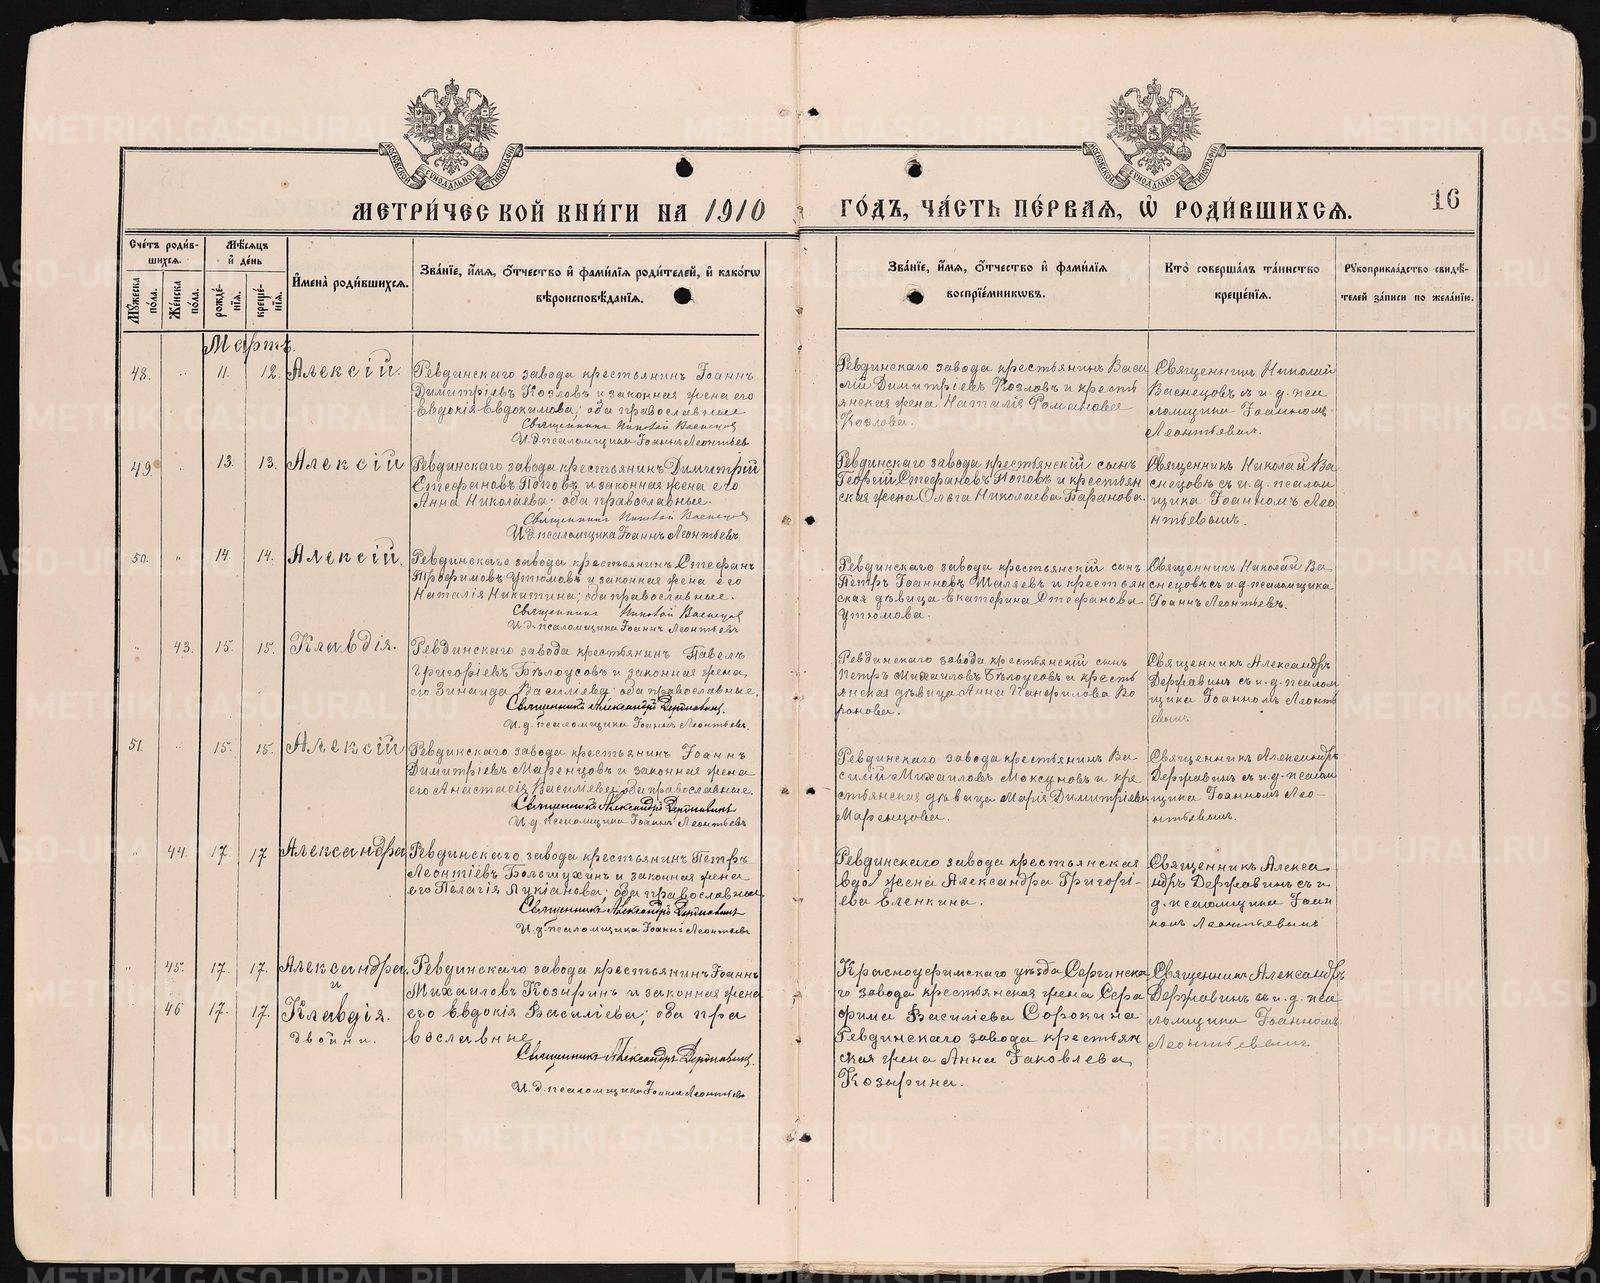 МОСКОВСКОЙ СѴНОДАЛЬНОЙ ТИПОГРАФІИ
МОСКОВСКОЙ СѴНОДАЛЬНОЙ ТИПОГРАФІИ
МЕТРИ́ЧЕСКОЙ КНИ́ГИ НА 1910
ГО́ДЪ, ЧА́СТЬ ПЕ́РВАЯ, Ѽ РОДИ́ВШИХСЯ.
16
Сче́тъ роди́в-
шихся.
Мꙋжеска по́ла.
Же́нска по́ла.
Мѣ́сяцъ
и҆ де́нь
рожде́-
нїя.
креще́-
нїя.
И҆мена̀ роди́вшихся.
Зва́нїе, и҆́мя, ѻ҆́тчество и҆ фами́лїя роди́телей, и҆ како́гѡ
вѣроисповѣ́данїя.
Зва́нїе, и҆́мя, ѻ҆́тчество и҆ фами́лїя
воспрїе́мникѡвъ.
Кто̀ соверша́лъ та́инство
креще́нїя.
Рꙋкоприкла́дство свидѣ́-
телей за́писи по жела́нїю.
Мартъ.
48. " 11. 12. Алексій.
Ревдинскаго завода крестьянинъ Іоаннъ
Димитріевъ Козловъ и законная жена его
Евдокія Евдокимова; оба православные
Священникъ Николай Васнецов
И.д. псаломщика Іоаннъ Леонтьев
Ревдинскаго завода крестьянинъ Васи
лій Димитріевъ Козловъ и кресть
янская жена Наталія Романова
Козлова.
Священник Николай
Васнецовъ с и.д. пса
ломщика Іоанномъ
Леонтьевым.
49. " 13. 13. Алексій
Ревдинскаго завода крестьянинъ Димитрій
Стефановъ Поповъ и законная жена его
Анна Николаева; оба православные.
Священник Николай Васнецов
И.д. псаломщика Іоаннъ Леонтьевъ
Ревдинскаго завода крестьянскій сынъ
Георгій Стефановъ Поповъ и крестьян
ская жена Ольга Николаева Баранова.
Священникъ Николай Ва
снецовъ съ и.д. псалом
щика Іоанномъ Лео
нтьевымъ.
50. " 14. 14. Алексій.
Ревдинскаго завода крестьянинъ Стефанъ
Трофимовъ Утюмовъ и законная жена его
Наталія Никитина; оба православные.
Священник Николай Васнецов
И.д. псаломщика Іоаннъ Леонтьевъ
Ревдинскаго завода крестьянскій сынъ
Петръ Іоанновъ Шаляевъ и крестьян
ская дѣвица Екатерина Стефанова
Утюмова.
Священникъ Николай Ва
снецовъ съ и.д. псаломщика
Іоаннъ Леонтьевъ.
" 43. 15. 15. Клавдія.
Ревдинскаго завода крестьянинъ Павелъ
Григоріевъ Бѣлоусовъ и законная жена
его Зинаида Василіева; оба православные.
Священникъ Александръ Державинъ.
И.д. псаломщика Іоаннъ Леонтьевъ.
Ревдинскаго завода крестьянскій сынъ
Петръ Михаиловъ Бѣлоусовъ и кресть
янская дѣвица Анна Панфилова Во
ронова.
Священникъ Александръ
Державинъ съ и.д. псалом
щика Іоанномъ Леонть
евымъ.
51. " 15. 15. Алексій
Ревдинскаго завода крестьянинъ Іоаннъ
Димитріевъ Маренцовъ и законная жена
его Анастасія Василіева; оба православные.
Священникъ Александръ Державинъ
И.д. псаломщика Іоаннъ Леонтьевъ
Ревдинскаго завода крестьянинъ Ва
силій Михаиловъ Моксуновъ и кре
стьянская дѣвица Марія Димитріева
Маренцова.
Священникъ Александръ
Державинъ съ и.д. псалом
щика Іоанномъ Лео-
нтьевымъ.
" 44. 17. 17 Александра
Ревдинскаго завода крестьянинъ Петръ
Леонтіевъ Большухинъ и законная жена
его Пелагія Лукіанова; оба православные
Священникъ Александръ Державинъ
И.д. псаломщика Іоаннъ Леонтьевъ
Ревдинскаго завода крестьянская
жена Александра Григорі-
ева Еленкина.
Священникъ Алекса
ндръ Державинъ съ и.
д. псаломщика Іоан
номъ Леонтьевымъ
" 45. 17. 17. Александра
и
46 17. 17. Клавдія.
двойни.
Ревдинскаго завода крестьянинъ Іоаннъ
Михаиловъ Козыринъ и законная жена
его Евдокія Василіева; оба пра
вославные
Священникъ Александръ Державинъ.
И.д. псаломщика Іоаннъ Леонтьевъ
Красноуфимскаго уѣзда Сергинска
го завода крестьянская жена Сера
фима Василіева Сорокина
Ревдинскаго завода крестьян
ская жена Анна Іаковлева
Козырина.
Священникъ Александръ
Державинъ съ и.д. пса
ломщика Іоанномъ
Леонтьевымъ.
METRIKI.GASO-URAL.RU